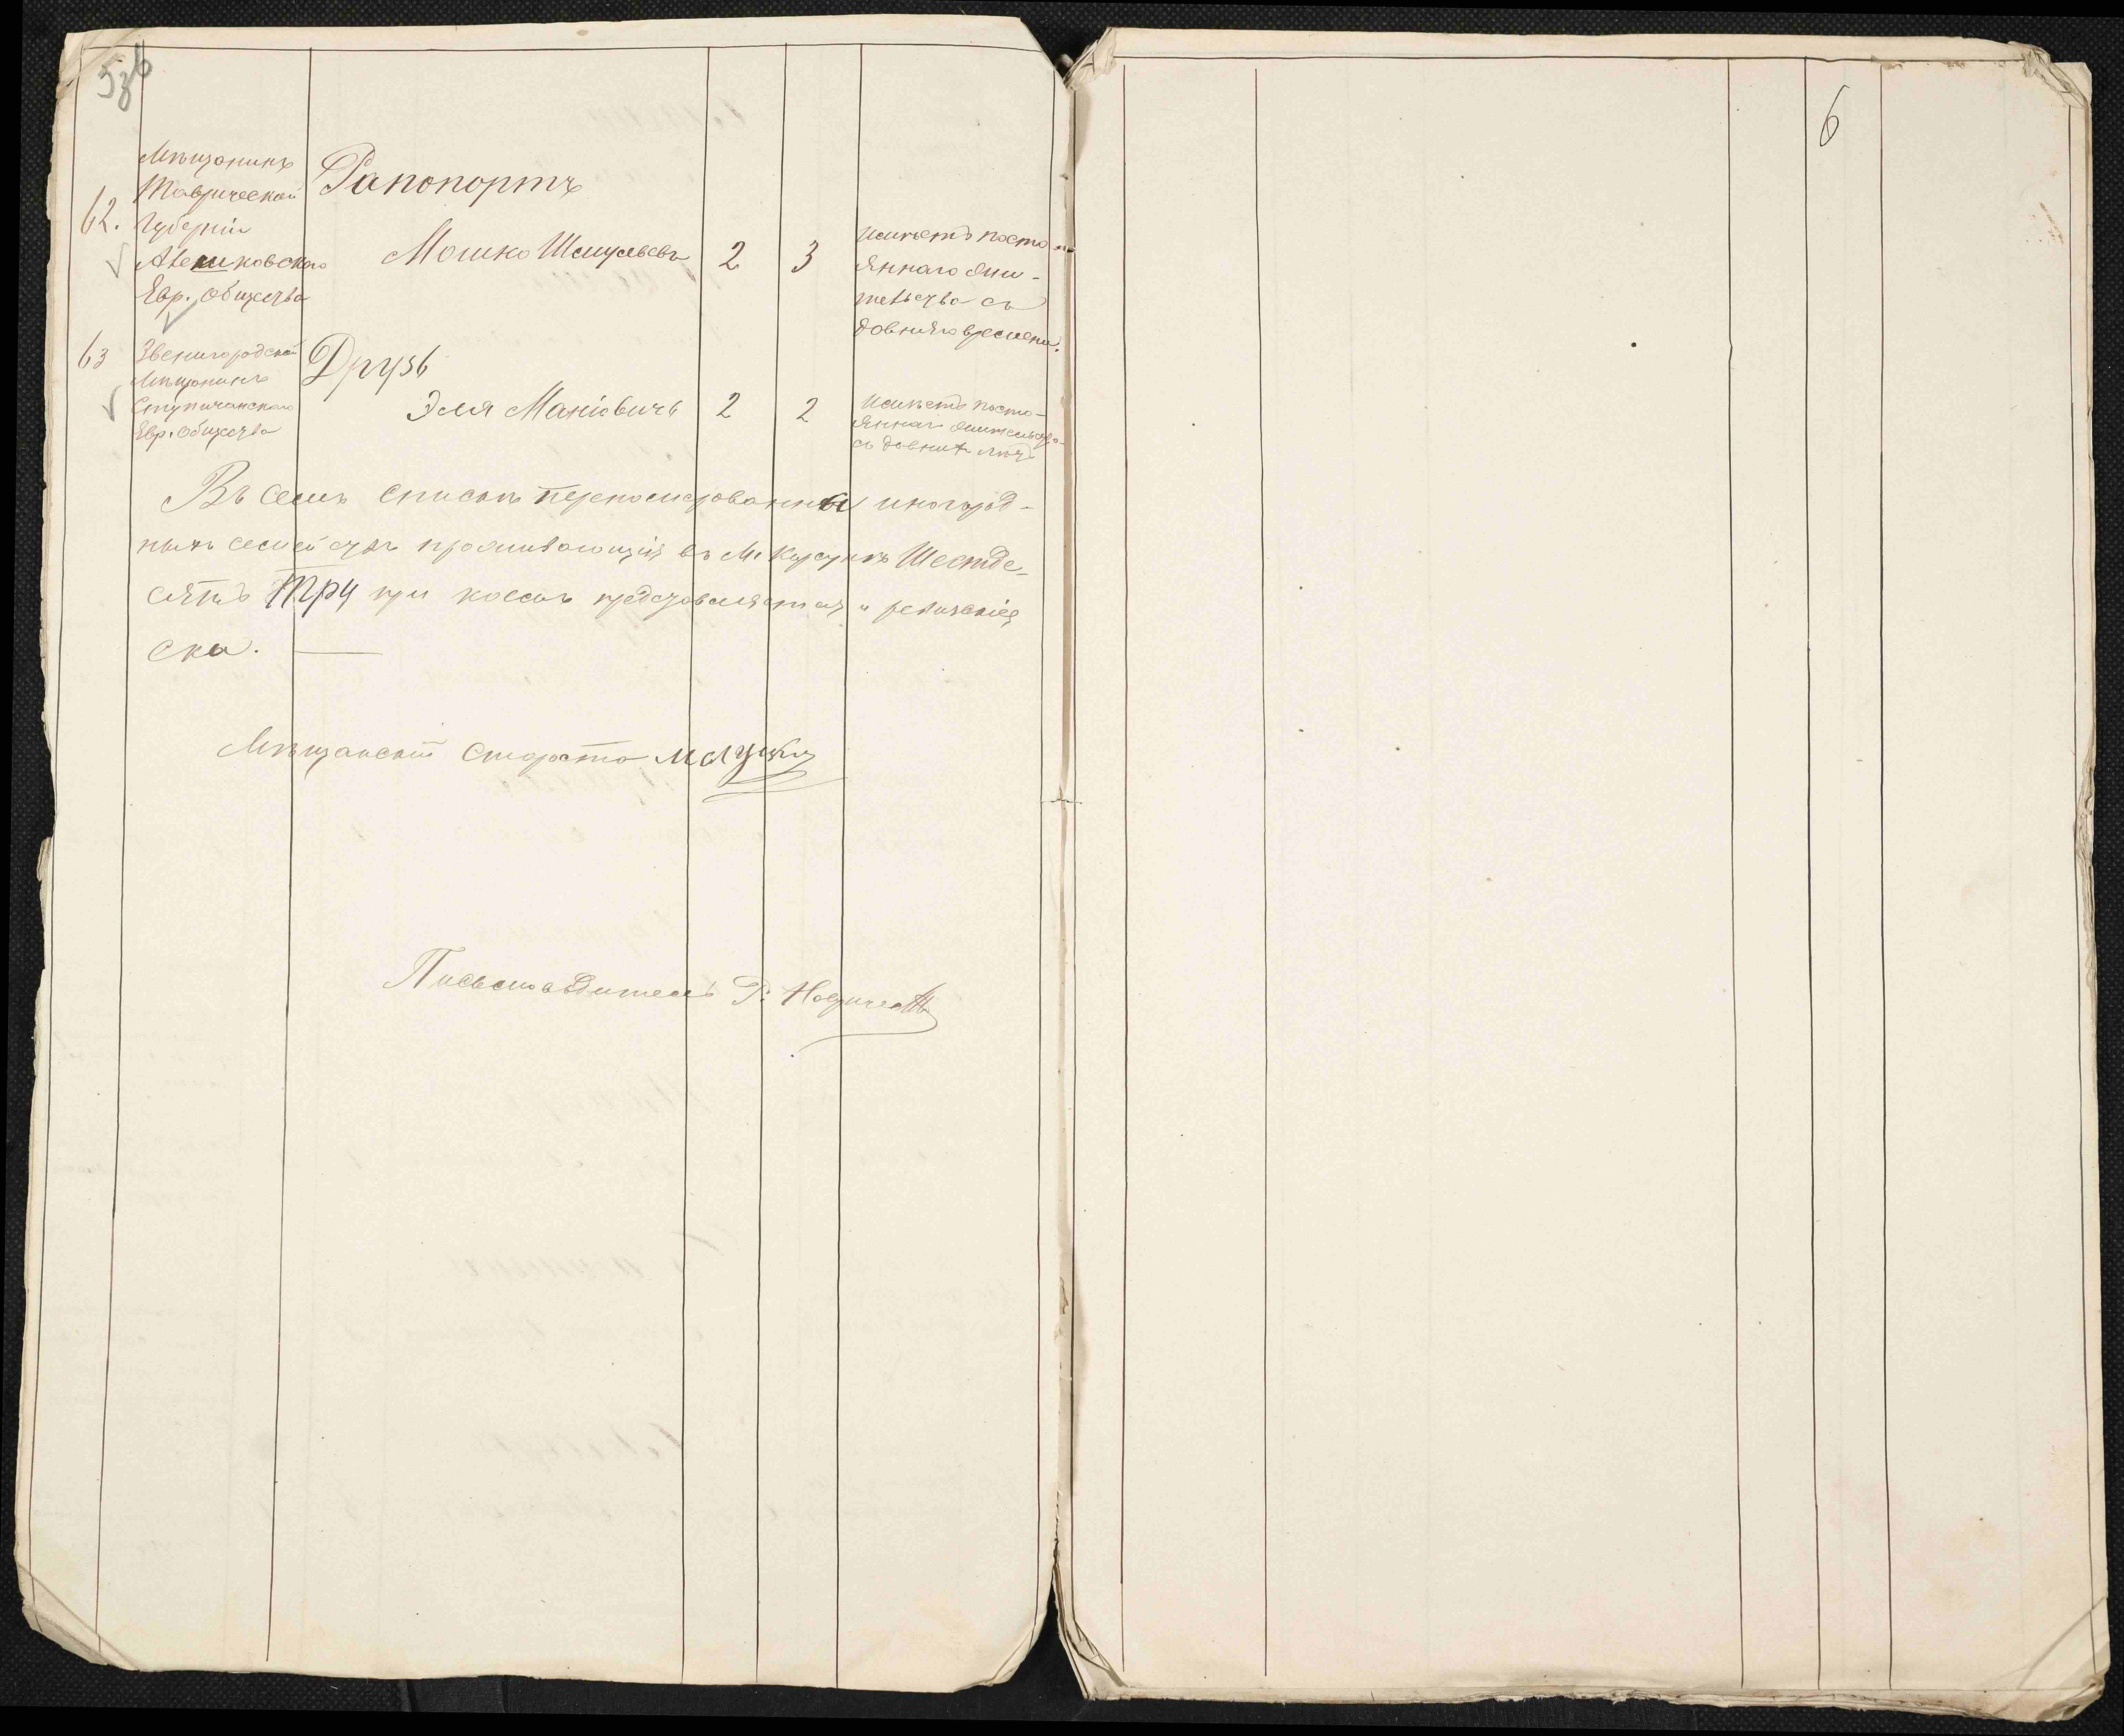 62.
Мѣщанинъ
Таврической
Губерніи
Алешковскаго
Евр. Общества
Рапопортъ
Мошко Шмулевъ
2
3
имѣетъ посто-
яннаго жи-
тельства съ
довняго времени.
63
Звенигородскій
Мѣщанинъ
Евр. Общества
Друзь
Эля Маніовичъ
2
2
имѣетъ посто-
яннаго жительства
съ довнихъ лѣтъ
Въ семъ спискѣ иногород-
ныхъ семействъ проживающихъ въ М. Корсунѣ Шестьде-
сятъ Три при коемъ представляется и ревизскія
ска.
Мѣщанскій Староста
Письмоводитель Г.
6